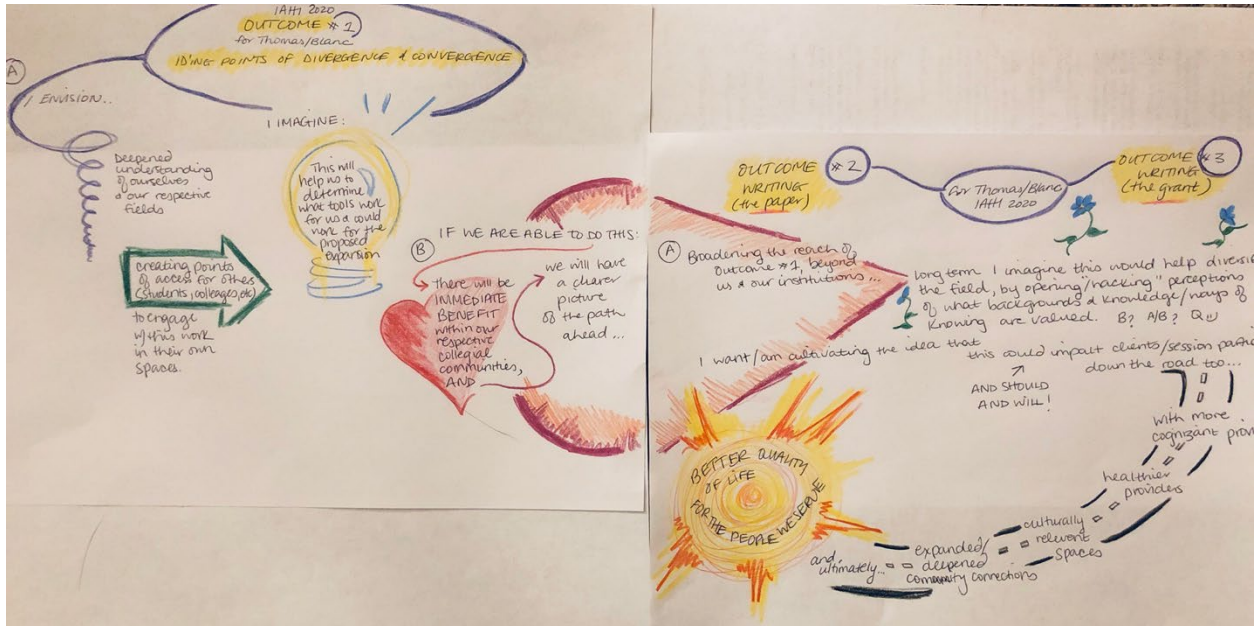 IAHI 2020
OUTCOME #1
for Thomas/Blanc
ID'ING POINTS OF DIVERGENCE & CONVERGENCE
A
I ENVISION..
Deepened
understanding
of ourselves
& our respective
fields
creating points
of access for others
(students, colleages, etc)
to engage
w/this work
in their own
spaces.
I IMAGINE:
This will
help us to
determine
what tools work
for us & could
work for the
proposed
expansion
B
IF WE ARE ABLE TO DO THIS:
There will be
IMMEDIATE
BENEFIT
within our
respective
collegial
communities,
AND
we will have
a clearer
picture
of the path
ahead...
OUTCOME #2
WRITING
(the paper)
for Thomas/Blanc
IAHI 2020
OUTCOME #3
WRITING
(the grant)
A
Broadening the reach of
Outcome #1, beyond
us & our institutions...
long term I imagine this would help diversi
the field, by opening/"hacking" perceptions
of what backgrounds & knowledge/ways of
knowing are valued. B? A/B? Q
I want/am cultivating the idea that
this could impact clients/session
down the road too...
AND SHOULD
AND WILL!
with more
cognizant provi
healthier
providers
culturally
relevant
spaces
expanded/
deepened
community connections
and,
ultimately...
BETTER QUALITY
OF LIFE
FOR THE PEOPLE WE SERVE